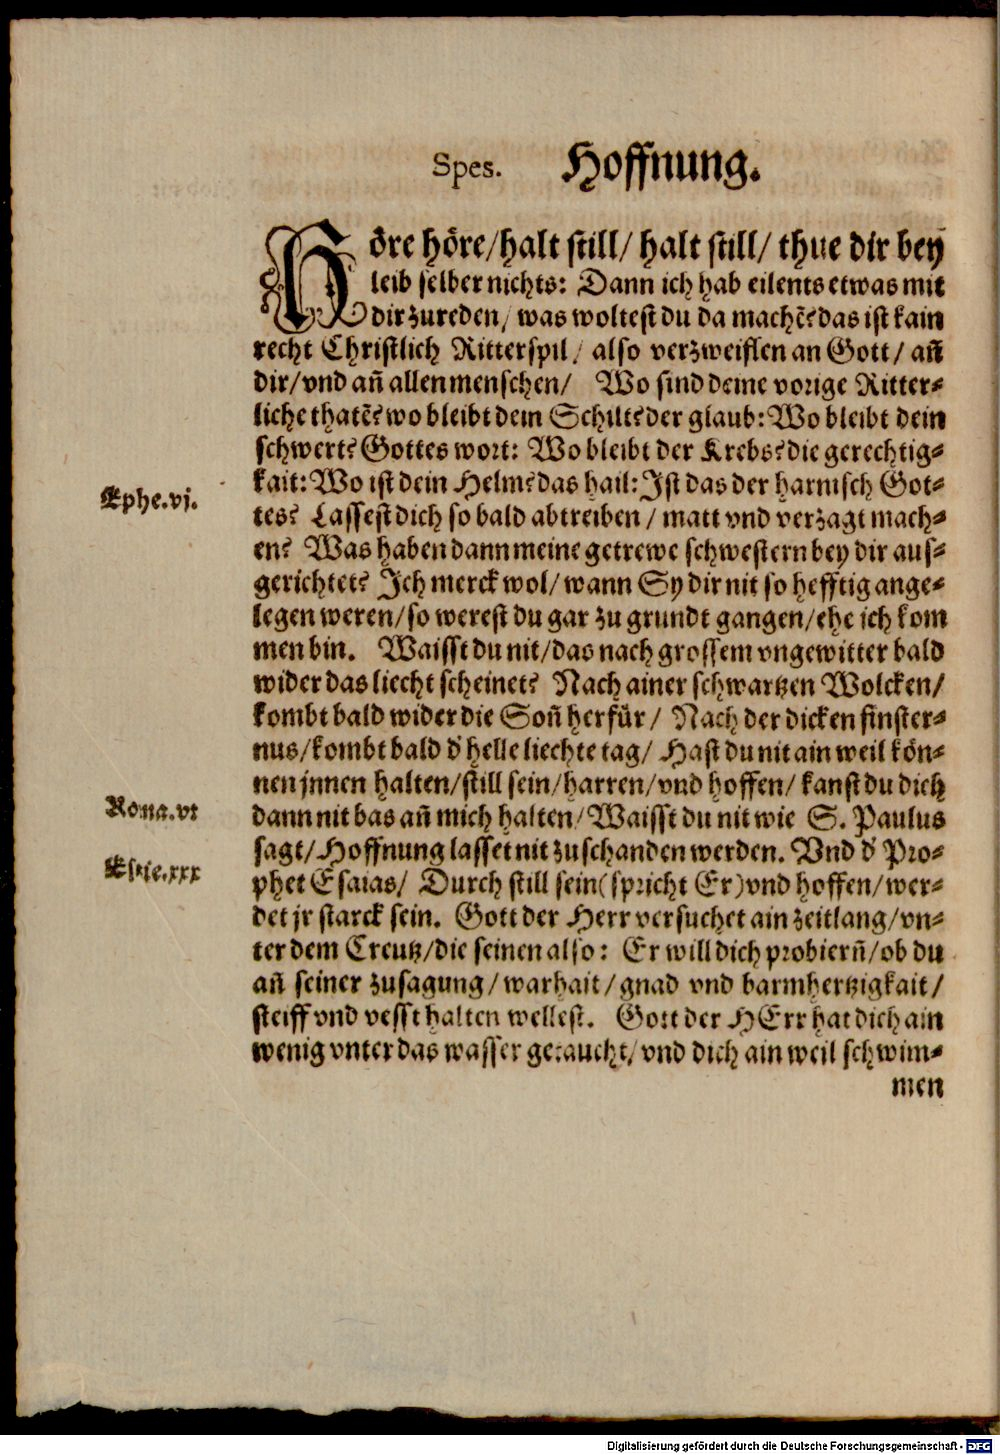 Spes. Hoffnung.
Höre höre/halt still/ halt still/ thue dir bey
leib selber nichts: Dann ich hab eilents etwas mit
dir zureden/ was woltest du da machẽ? das ist kain
recht Christlich Ritterspil/ also verzweiflen an Gott/ an̄
dir/vnd an̄ allen menschen/ Wo sind deine vorige Ritter-
liche thatẽ? wo bleibt dein Schilt? der glaub: Wo bleibt dein
schwert? Gottes wort: Wo bleibt der Krebs? die gerechtig-
kait: Wo ist dein Helm? das hail: Ist das der harnisch Got-
Ephe.vj.
tes? Lassest dich so bald abtreiben/ matt vnd verzagt mach-
en? Was haben dann meine getrewe schwestern bey dir aus-
gerichtet? Ich merck wol/ wann Sy dir nit so hefftig ange-
legen weren/so werest du gar zu grundt gangen/ehe ich kom
men bin. Waisst du nit/das nach grossem vngewitter bald
wider das liecht scheinet? Nach ainer schwartzen Wolcken/
kombt bald wider die Son̄ herfür/ Nach der dicken finster-
nus/kombt bald d' helle liechte tag/ Hast du nit ain weil kön-
nen jnnen halten/still sein/harren/vnd hoffen/ kanst du dich
dann nit bas an̄ mich halten/Waisst du nit wie S. Paulus
Roma.vt
sagt/Hoffnung lasset nit zuschanden werden. Vnd d' Pro-
phet Esaias/ Durch still sein(spricht Er)vnd hoffen/wer-
Esaie.xxx
det jr starck sein. Gott der Herr versuchet ain zeitlang/vn-
ter dem Creutz/die seinen also: Er will dich probiern̄/ob du
an̄ seiner zusagung/warhait/gnad vnd barmhertzigkait/
steiff vnd vesst halten wellest. Gott der HErr hat dich ain
wenig vnter das wasser getaucht/vnd dich ain weil schwim-
men
Digitalisierung gefördert durch die Deutsche Forschungsgemeinschaft - DFG